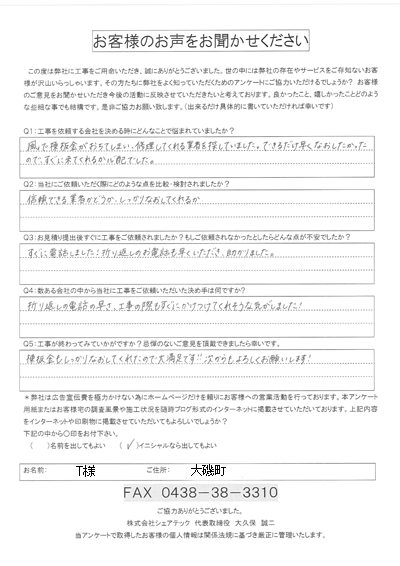 お客様のお声をお聞かせください
この度は弊社に工事をご用命いただき、誠にありがとうございました。世の中には弊社の存在やサービスをご存知ないお客
様が沢山いらっしゃいます。その方たちに弊社をよく知っていただくためのアンケートにご協力いただけるでしょうか? お客様
のご意見をお聞かせいただき今後の活動に反映させていただきたいと考えております。良かったこと、嬉しかったことどのよう
な些細な事でも結構です。是非ご協力お願い致します。(出来るだけ具体的に書いていただければ幸いです)
Q1:工事を依頼する会社を決める時にどんなことで悩まれていましたか?
風で棟板金がおちてしまい、修理してくれる業者を探していました。できるだけ早くなおしたかった
ので、すぐに来てくれるか心配でした。
Q2:当社にご依頼いただく際にどのような点を比較・検討されましたか?
信頼できる業者かどうか、しっかりなおしてくれるか
Q3:お見積り提出後すぐに工事をご依頼されましたか?もしご依頼されなかったとしたらどんな点が不安でしたか?
すぐに電話しました!折り返しのお電話も早くいただき、助かりました。
Q4:数ある会社の中から当社に工事をご依頼いただいた決め手は何ですか?
折り返しの電話の早さ、工事の際もすぐにかけつけてくれそうな気がしました!
Q5:工事が終わってみていかがですか?忌憚のないご意見を頂戴できましたら幸いです。
棟板金もしっかりなおしてくれたので大満足です!!次からもよろしくお願いします!
*弊社は広告宣伝費を極力かけない為にホームページだけを頼りにお客様への営業活動を行っております。本アンケート
用紙またはお客様宅の調査風景や施工状況を随時ブログ形式のインターネットに掲載させていただいております。上記内容
をインターネットや印刷物に掲載させていただいてもよろしいでしょうか?
下記の中から〇印をお付下さい。
( )名前を出してもよい (✓)イニシャルなら出してもよい
お名前: T様 ご住所: 大磯町
FAX 0438-38-3310
ご協力ありがとうございました。
株式会社シェアテック 代表取締役 大久保 誠二
当アンケートで取得したお客様の個人情報は関係法規に基づき厳正に管理いたします。